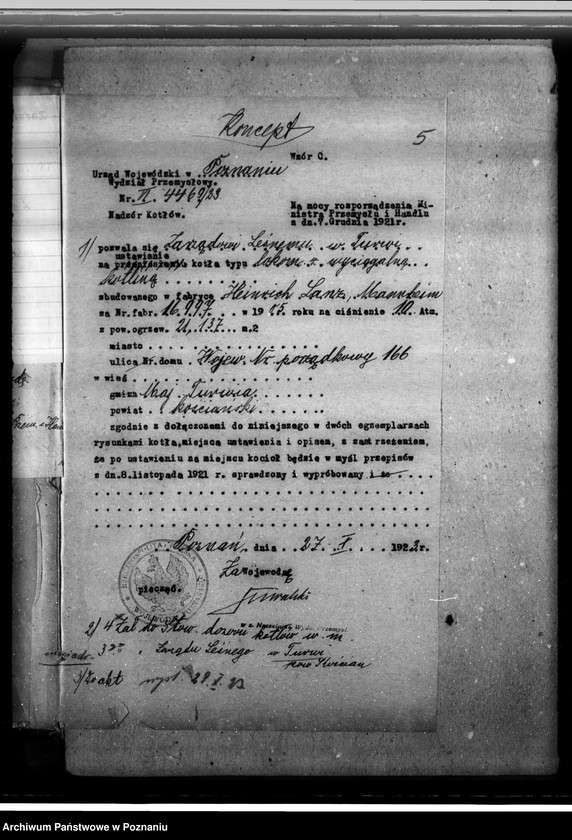 Koncept
5
Wzór C.
Urząd Wojewódzki w Poznaniu
Wydział Przemysłowy.
Nr. VI. 4469/23
Nadzór Kotłów.
Na mocy rozporządzenia Mi-
nistra Przemysłu i Handlu
z dn.7.Grudnia 1921r.
1/ pozwala się Zarządowi Leśnemu w Turwi
ustawienie
na kotła typu lokom. z wyciągalną
zbudowanego w fabryce Heinrich Lanz, Mannheim
za Nr.fabr. 16.997 . . w 19 05. roku na ciśnienie 10. Atm.
z pow.ogrzew. 21,137 . . m.2
miasto
ulica Nr.domu . Wojew. Nr porządkowy 166
w wieś
gmina Maj. Turwia
powiat . kościański
zgodnie z dołączonemi do niniejszego w dwóch egzemplarzach
rysunkami kotła,miejsca ustawienia i opisem, z zastrzeżeniem,
że po ustawieniu na miejscu kocioł będzie w myśl przepisów
z dn.8.listopada 1921 r. sprawdzony i wypróbowany i że
Poznań, dnia . . 27. X . . . . 1923r.
Za Wojewodę
pieczęć.
2) 4 Zał do Stow. dozoru kotłów w m.
3 " Zarządu Leśnego w Turwi
pow Kościan
3/ Zo akt
Archiwum Państwowe w Poznaniu